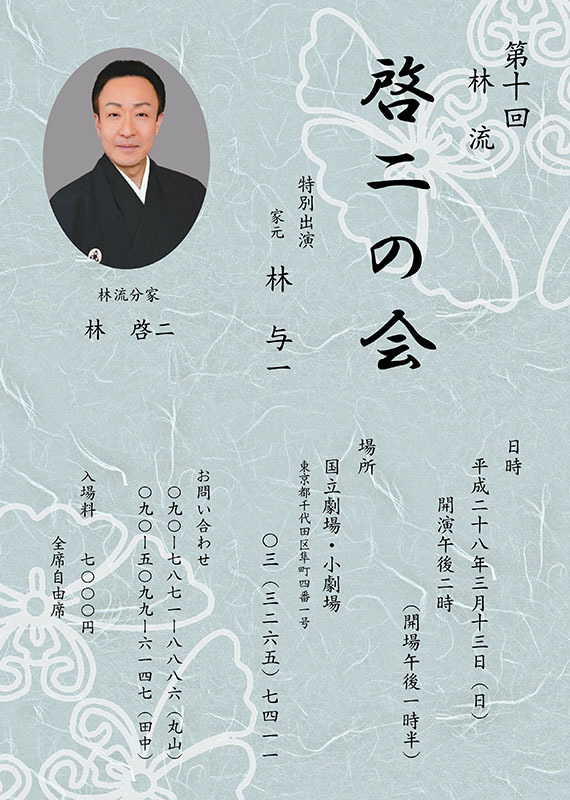 第十回
林流
啓二の会
特別出演
家元 林与一
林流分家
林 啓二
日時
平成二十八年三月十三日（日）
開演午後二時
（開場午後一時半）
場所
国立劇場・小劇場
東京都千代田区隼町四番一号
〇三（三二六五）七四一一
お問い合わせ
〇九〇ー七八七一ー八八八六（丸山）
〇九〇ー五〇九九ー六一四七（田中）
入場料 七〇〇〇円
全席自由席